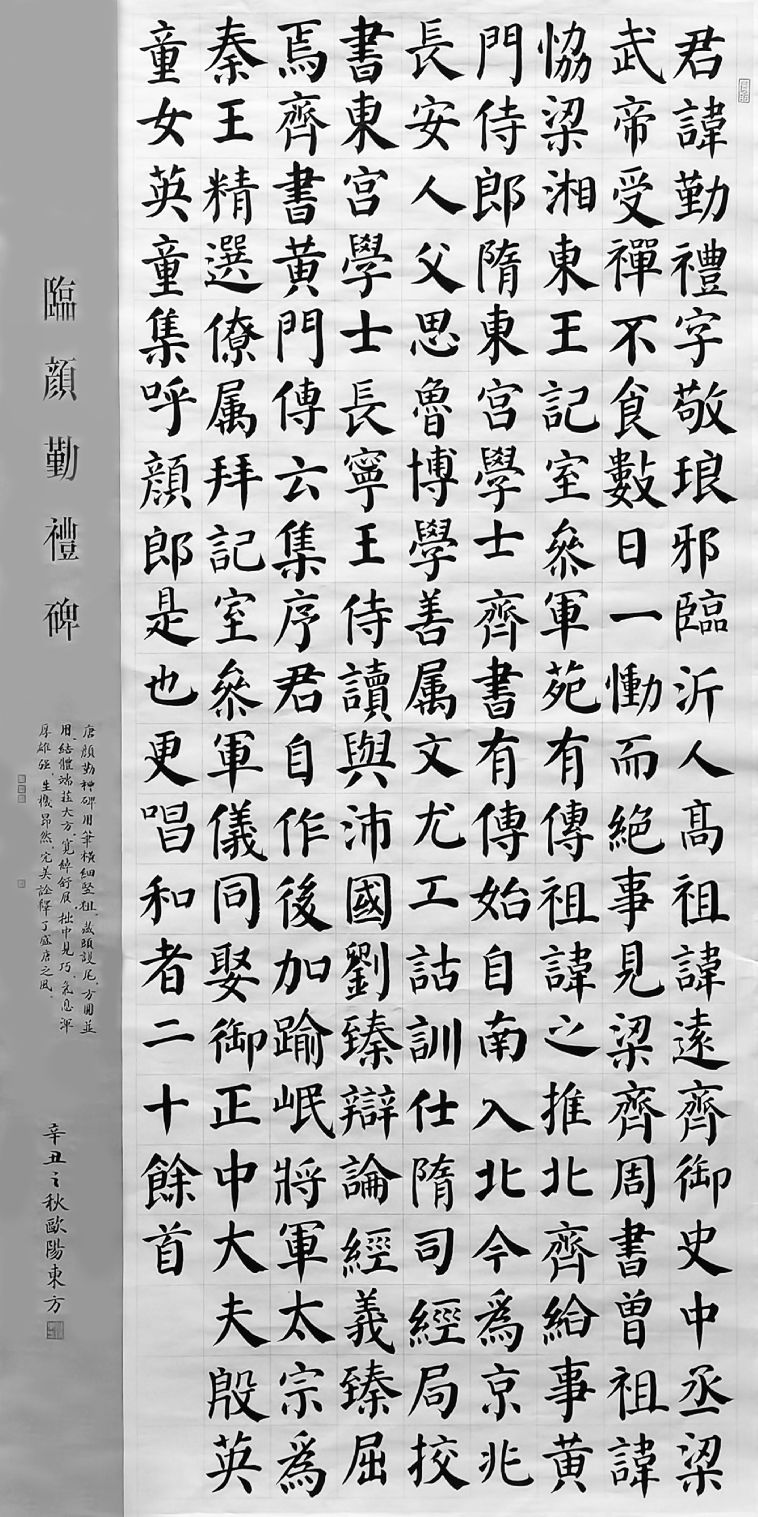 君諱勤禮字敬琅邪臨沂人髙祖諱遠齊御史中丞梁
武帝受禪不食數日一慟而絕事見梁齊周書曾祖諱
恊梁湘東王記室叅軍苑有傳祖諱之推北齊給事黃
門侍郎隋東宮學士齊書有傳始自南入北今為京兆
長安人父思魯博學善属文尤工詁訓仕隋司經局挍
書東宮學士長寧王侍讀與沛國劉臻辯論經義臻屈
焉齊書黃門傳云集序君自作後加踰岷將軍太宗為
秦王精選僚属拜記室叅軍儀同娶御正中大夫殷英
童女英童集呼顏郎是也更唱和者二十餘首
臨顏勤禮碑
唐顏勤禮碑用筆橫細竪粗、藏頭護尾、方圓並
用、結體端莊大方、寬綽舒展、拙中見巧、氣息渾
厚雄强、生機昂然完美詮釋了盛唐之風、
辛丑之秋歐陽東方